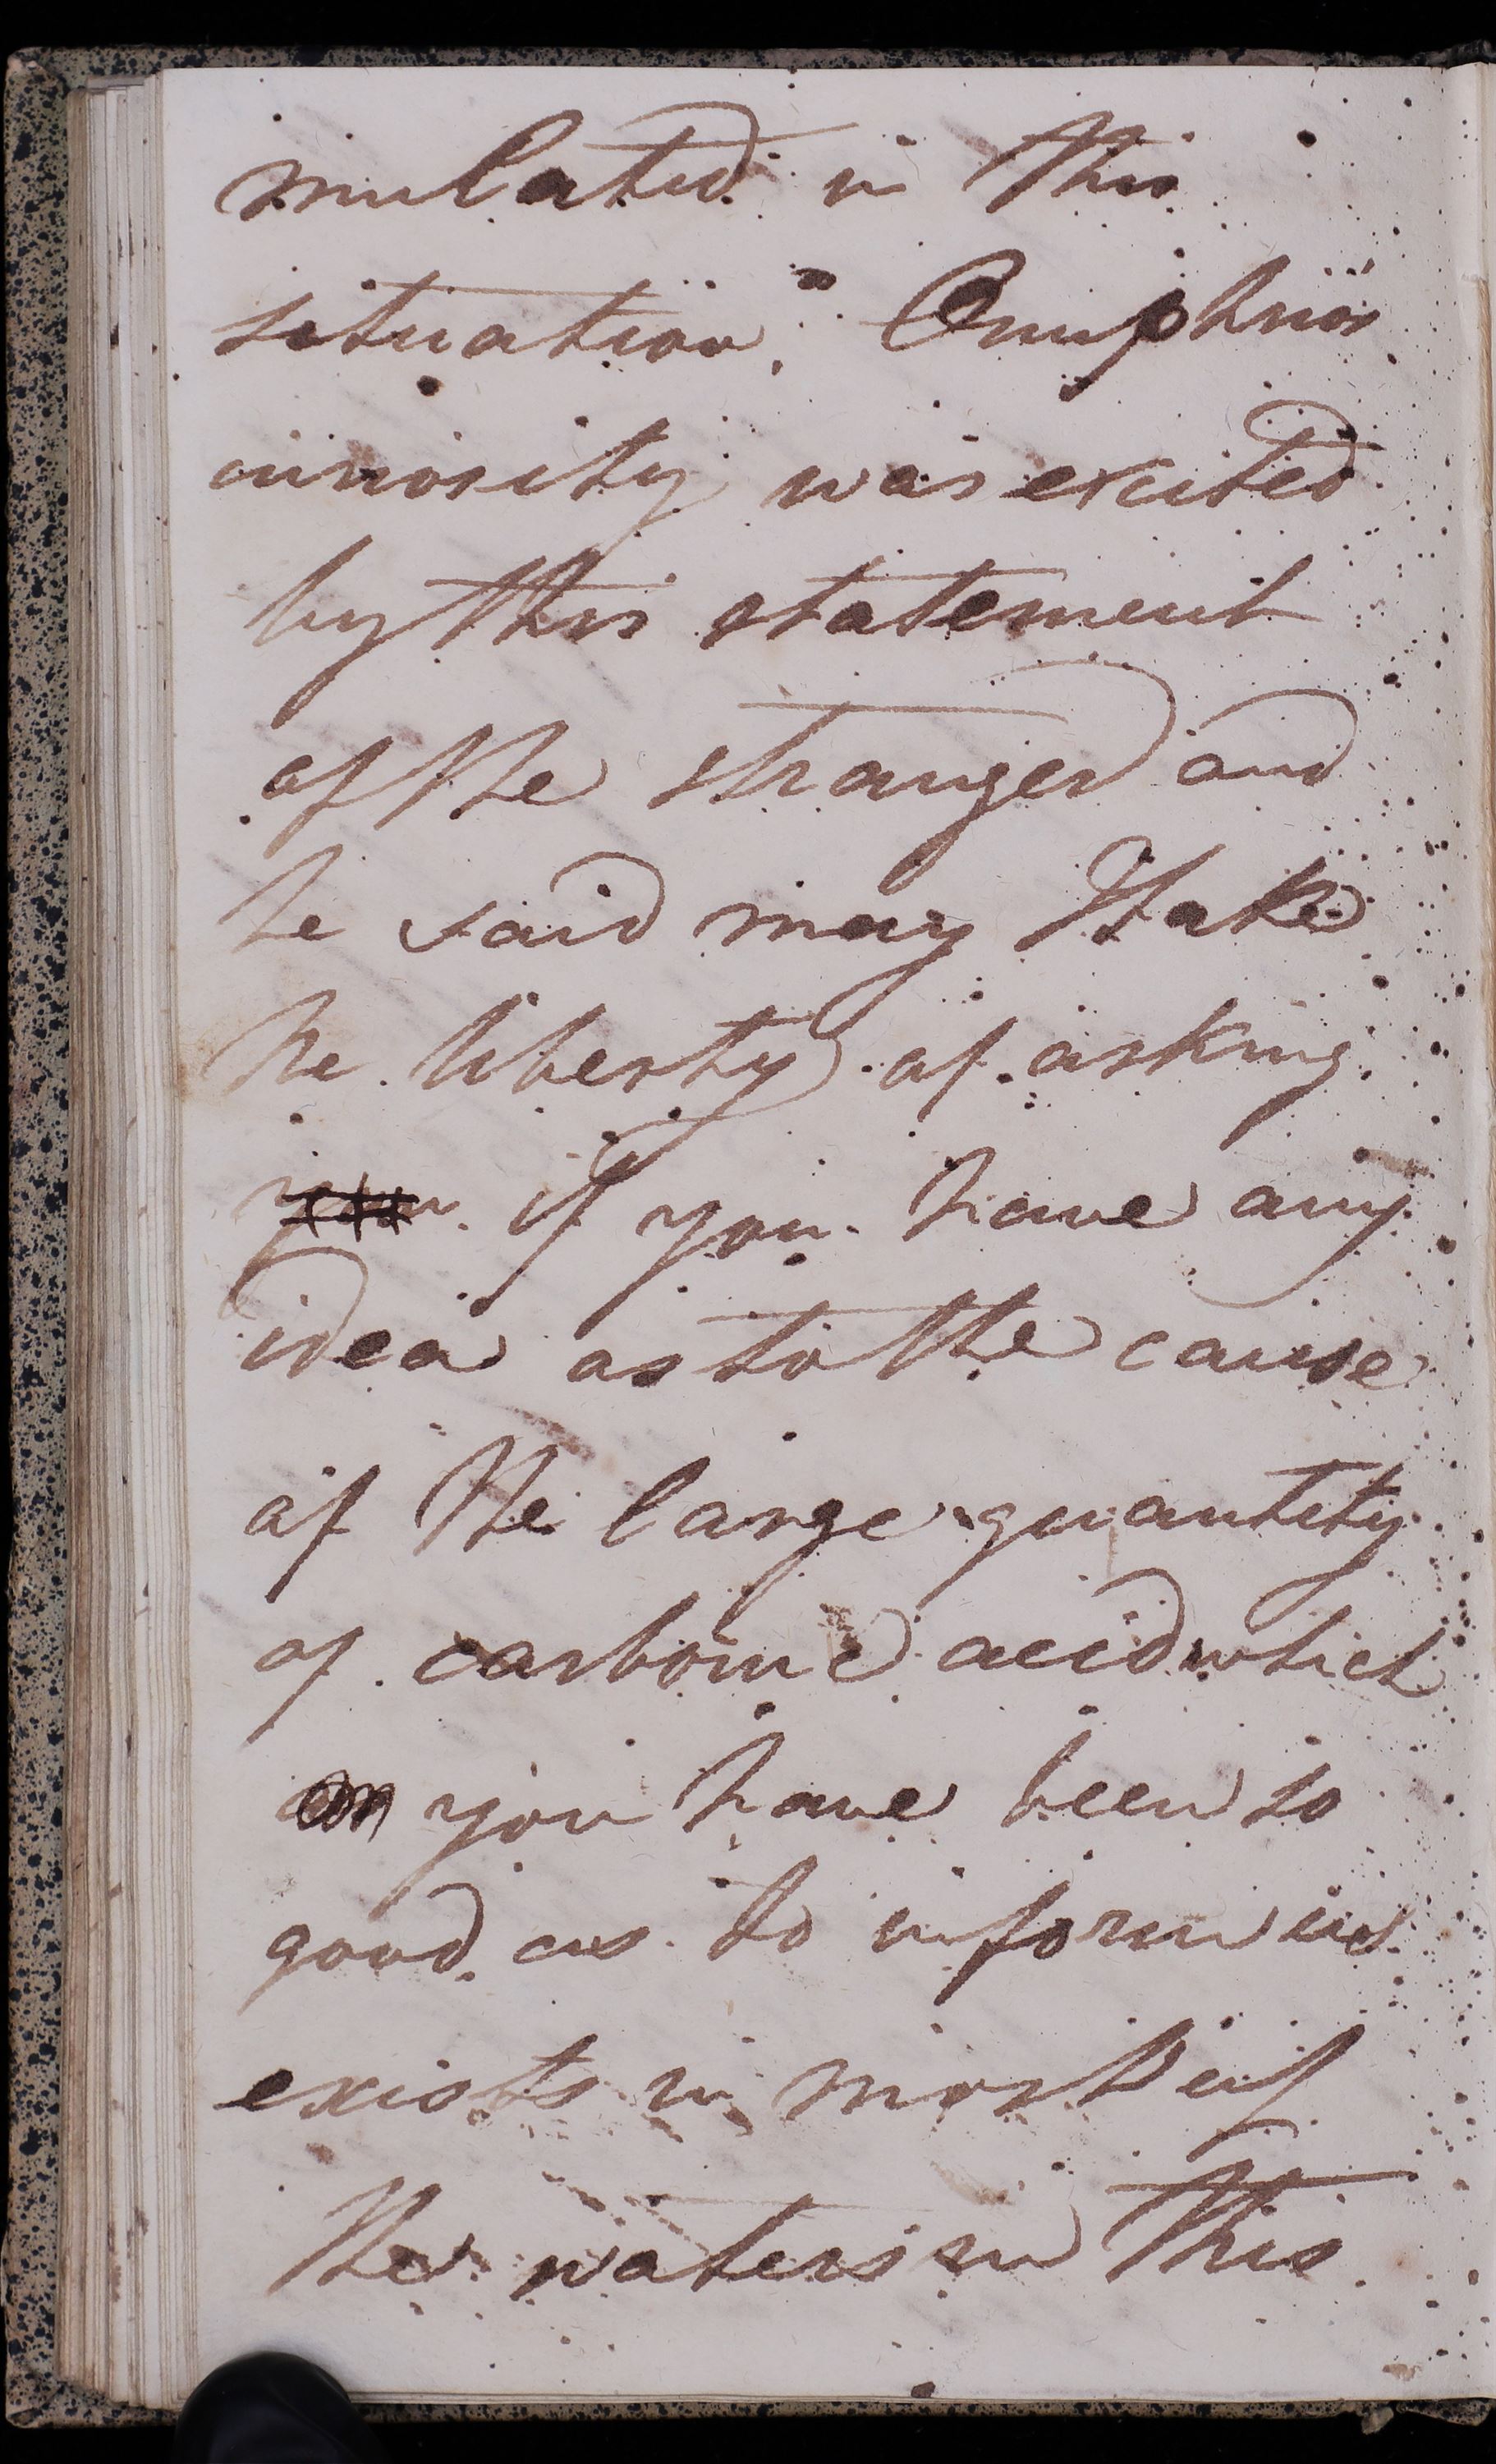 mulated in this
situation." Onuphrio's
curiosity was excited
by this statement
of the stranger and
he said may I take
the liberty of asking
you if you have any
idea as to the cause
of the large quantity
of carbonic acid which
you have been so
good as to inform us
exists in most of
the waters in this